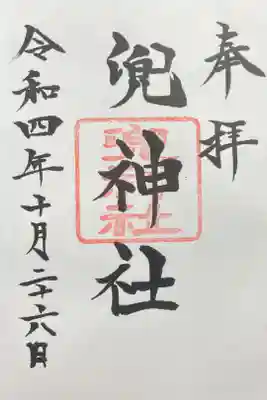 奉拝
兜神社
兜神社
令和四年十月二十六日